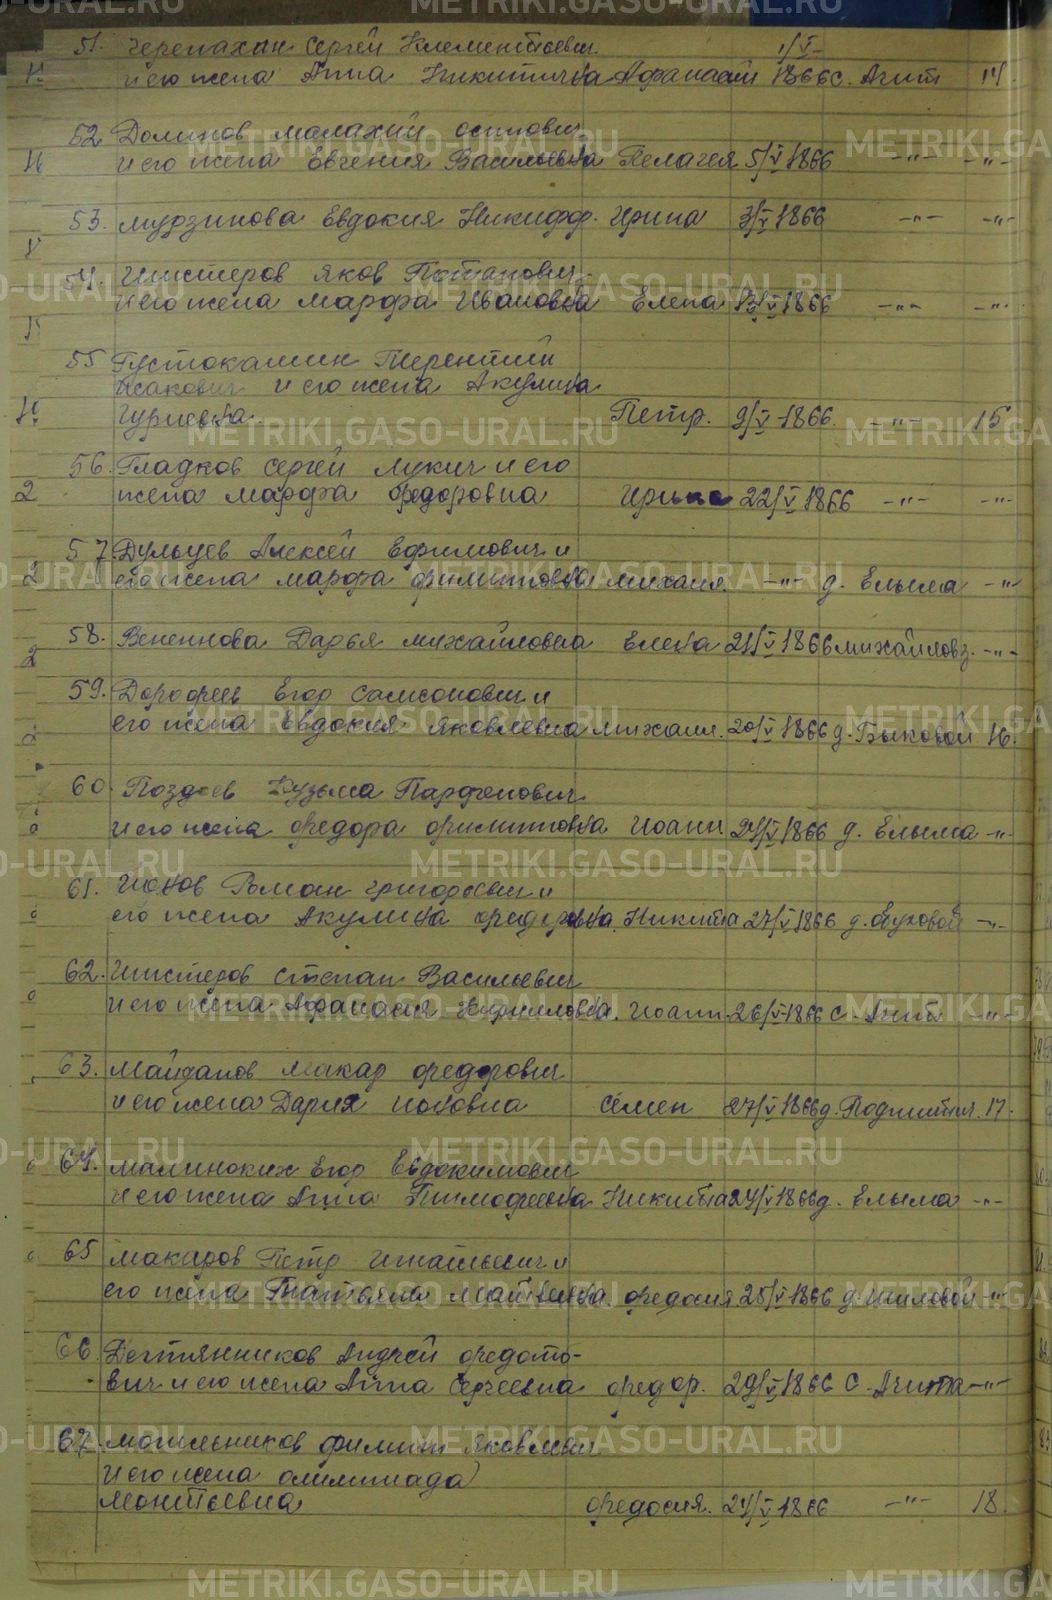 51. Черепахин Сергей Клементьевич 1/V-
и его жена Анна Никитична Афанасий 1866 с. Ачит 14.
52 Долинов Малахий Осипович
и его жена Евгения Васильевна Пелагея 5/V 1866 -"- -"-
53. Мурзинова Евдокия Никифор. Ирина 3/V 1866 -"- -"-
54. Шистеров Яков Потапович
и его жена Марфа Ивановна Елена 13/V 1866 -"- -"-
55 Пустокашин Терентий
Исакович и его жена Акулина
Гурьевна. Петр. 9/V 1866. -"- 15
56. Гладков Сергей Лукич и его
жена Марфа Федоровна Ирина 22/V 1866 -"- -"-
57 Дульцев Алексей Ефимович и
его жена Марфа Филипповна Михаил. -"- д. Елыма -"-
58. Дарья Михайловна Елена 21/V 1866 Михайлов з. -"-
59. Дорофеев Егор Самсонович и
его жена Евдокия Яковлевна Михаил. 20/V 1866 д. Быковой 16.
60 Поздеев Кузьма Парфенович
и его жена Федора Филипповна Иоанн 24/V 1866 д. Елыма -"-
61. Роман Григорьевич и
его жена Акулина Федоровна. Никита 27/V 1866 д. -"-
62. Шистеров Степан Васильевич
и его жена Афанасия Кирилловна. Иоанн 26/V 1866 с. Ачит -"-
63. Майданов Макар Федорович
и его жена Дария Ионовна Семен 27/V 1866 д. 17.
64. Малиноких Егор Евдокимович
и его жена Анна Тимофеевна Никита 24/V 1866 д. Елыма -"-
65 Макаров Петр Игнатьевич и
его жена Татьяна Матвеевна. Федосия 25/V 1866 д. -"-
66. Дегтянников Андрей Федото-
вич и его жена Анна Сергеевна Федор. 29/V 1866 с. Ачита -"-
67. Могильников Филипп Яковлевич
и его жена Олимпиада
Федосия. 24/V 1866 -"- 18.
METRIKI.GASO-URAL.RU